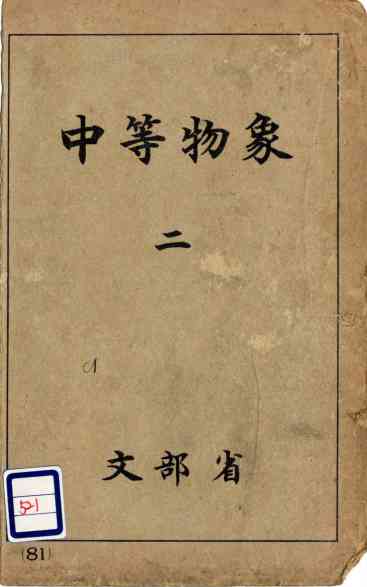 中等物象
二
文部省
521
(81)